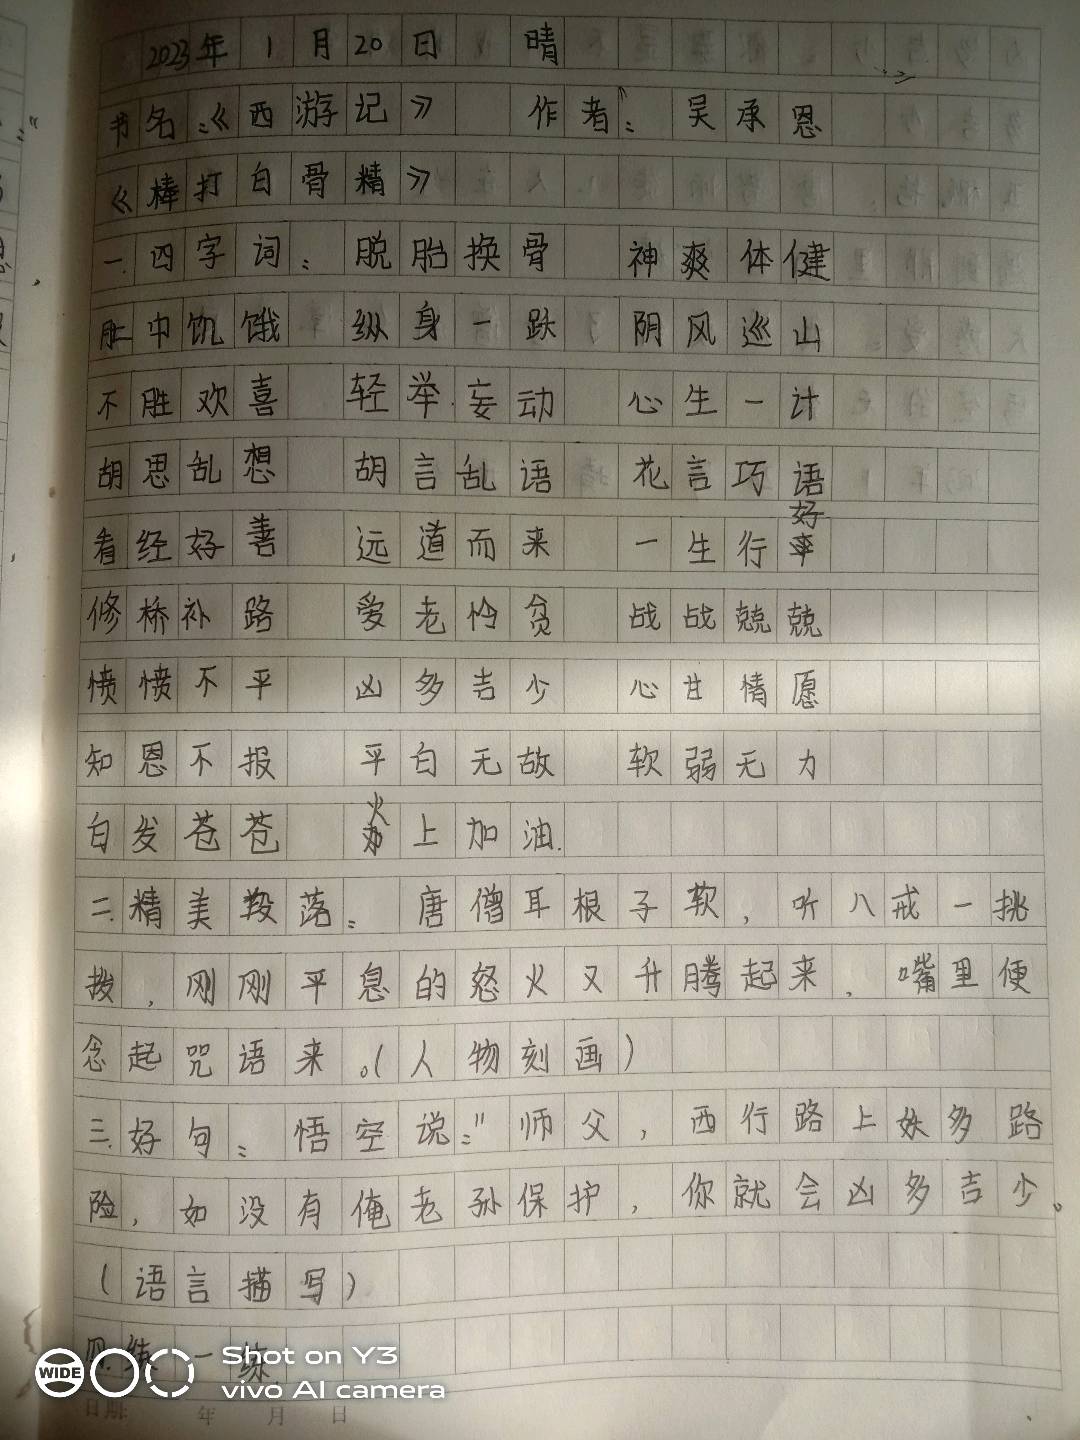 2023年1月20日 晴
书名：《西游记》 作者：吴承恩
《棒打白骨精》
一.四字词：脱胎换骨 神爽体健
肚中饥饿 纵身一跃 阴风巡山
不胜欢喜 轻举妄动 心生一计
胡思乱想 胡言乱语 花言巧语
看经好善 远道而来 一生行好
修桥补路 爱老怜贫 战战兢兢
愤愤不平 凶多吉少 心甘情愿
知恩不报 平白无故 软弱无力
白发苍苍 火上加油.
二.精美段落：唐僧耳根子软，听八戒一挑
拨，刚刚平息的怒火又升腾起来，嘴里便
念起咒语来。(人物刻画)
三.好句：悟空说："师父，西行路上妖多路
险，如没有俺老孙保护，你就会凶多吉少。
(语言描写)
四.练一练
日期: 年 月 日
WIDE
Shot on Y3
vivo AI camera